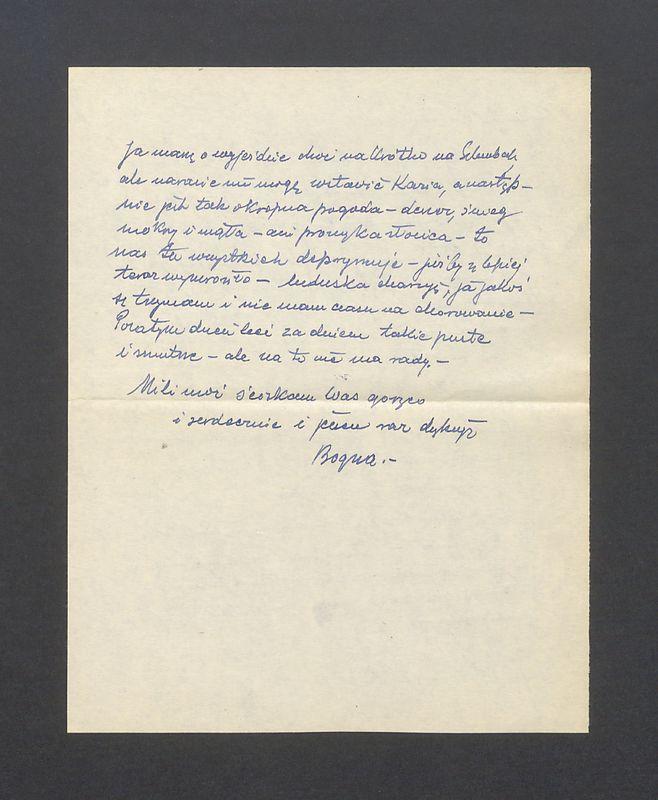 Ja marzę o wyjeździe choć na krótko na
ale narazie nie mogę zostawić Kazia, a następ-
nie jest tak okropna pogoda – deszcz, śnieg
mokry i mgła – ani promyka słońca – to
nas tu wszystkich deprymuje –
teraz – ludziska chorzy, ja jakoś
się trzymam i nie mam czasu na chorowanie –
Poza tym dzień leci za dniem takie puste
i smutne – ale na to nie ma rady. –
Mili moi ściskam Was gorąco
i serdecznie i jeszcze raz dziękuję
Bogna. –